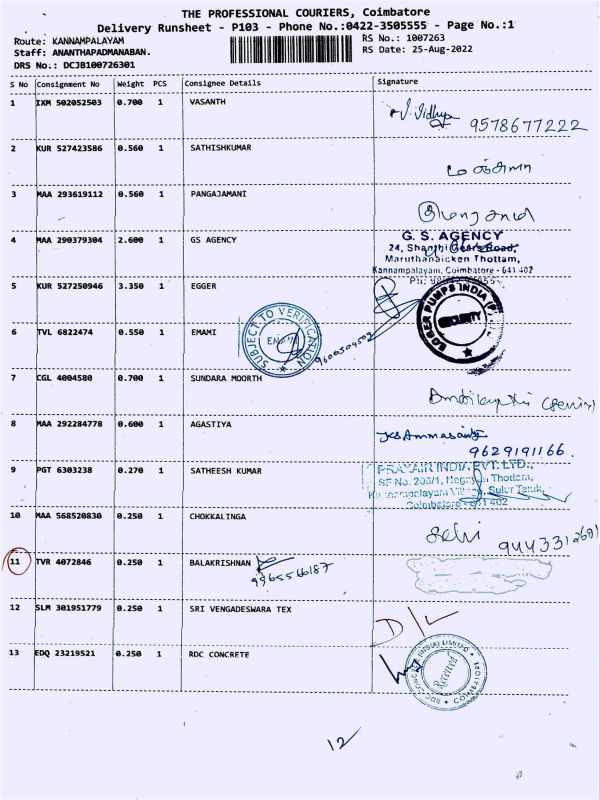 THE PROFESSIONAL COURIERS, Coimbatore
Delivery Runsheet - P103 - Phone No.:0422-3505555 - Page No.:1
Route: KANNAMPALAYAM
RS No.: 1007263
Staff: ANANTHAPADMANABAN.
RS Date: 25-Aug-2022
DRS No.: DCJB100726301
S No Consignment No Weight PCS Consignee Details Signature
1 IXM 502052503 0.700 1 VASANTH
V. Vidhya 9578677222
2 KUR 527423586 0.560 1 SATHISHKUMAR
3 MAA 293619112 0.560 1 PANGAJAMANI
4 MAA 290379304 2.600 1 GS AGENCY
G. S. AGENCY
24, Shanthi Gears Road,
Maruthanaicken Thottam,
Kannampalayam, Coimbatore - 641 402
5 KUR 527250946 3.350 1 EGGER
SECURITY
6 TVL 6822474 0.550 1 EMAMI
SUBJECT TO VERIFICATION
EMAMI
9600504502
7 CGL 4004580 0.700 1 SUNDARA MOORTH
8 MAA 292284778 0.600 1 AGASTIYA
9629191166.
9 PGT 6303238 0.270 1 SATHEESH KUMAR
PRAXAIR INDIA PVT. LTD.,
10 MAA 568520830 0.250 1 CHOKKALINGA
Selvi
11 TVR 4072846 0.250 1 BALAKRISHNAN
12 SLM 301951779 0.250 1 SRI VENGADESWARA TEX
D/L
13 EDQ 23219521 0.250 1 RDC CONCRETE
RDC CONCRETE (INDIA) LIMITED
Received
COIMBATORE
12